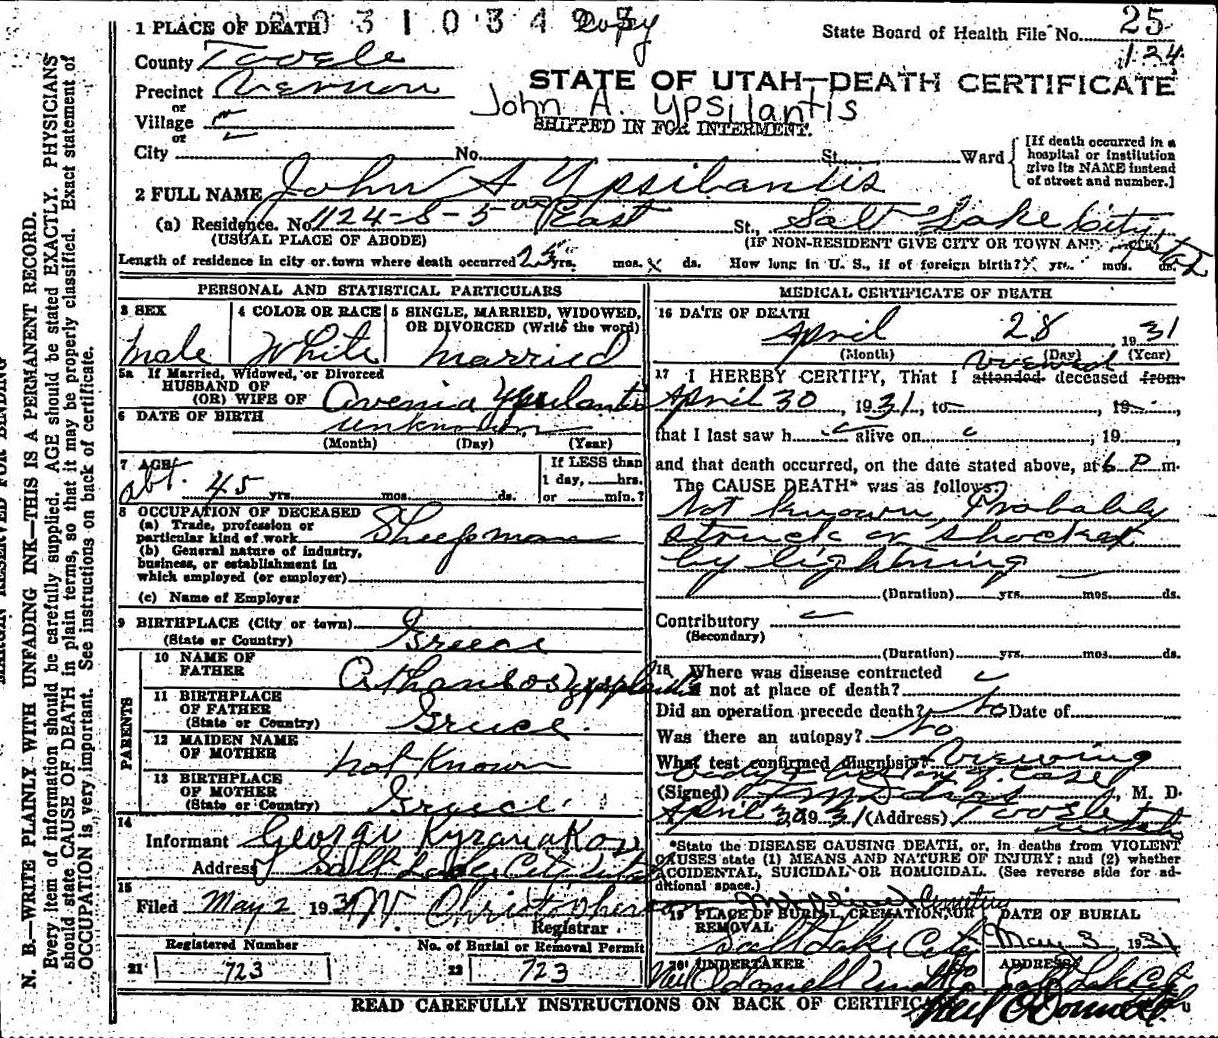 1 PLACE OF DEATH 0 3 1 0 3 4 Copy
State Board of Health File No. 25
124
County Tooele
Precinct Vernon
or
Village
or
City No. St. Ward
STATE OF UTAH—DEATH CERTIFICATE
John A. Ypsilantis
SHIPPED IN FOR INTERMENT.
[If death occurred in a
hospital or institution
give its NAME instead
of street and number.]
2 FULL NAME John A Ypsilantis
(a) Residence. No. 1124-S-5 East St., Salt Lake City Utah
(USUAL PLACE OF ABODE) (IF NON-RESIDENT GIVE CITY OR TOWN AND
Length of residence in city or town where death occurred yrs. mos. ds. How long in U. S., if of foreign birth? yrs. mos. ds.
PERSONAL AND STATISTICAL PARTICULARS
3 SEX
male
4 COLOR OR RACE
White
5 SINGLE, MARRIED, WIDOWED,
OR DIVORCED (Write the word)
married
5a If Married, Widowed, or Divorced
HUSBAND OF
(OR) WIFE OF Avenia Ypsilantis
6 DATE OF BIRTH unknown
(Month) (Day) (Year)
7 AGE
abt. 45 yrs. mos. ds.
If LESS than
1 day, hrs.
or min.?
8 OCCUPATION OF DECEASED
(a) Trade, profession or
particular kind of work Sheepman
(b) General nature of industry,
business, or establishment in
which employed (or employer)
(c) Name of Employer
9 BIRTHPLACE (City or town)
(State or Country) Greece
PARENTS
10 NAME OF
FATHER
11 BIRTHPLACE
OF FATHER
(State or Country) Greece
12 MAIDEN NAME
OF MOTHER not Known
13 BIRTHPLACE
OF MOTHER
(State or Country) Greece
14
Informant George
Address Salt Lake City Utah
15
Filed May 2 1931 W. Christopherson
Registrar
Registered Number
21 723
No. of Burial or Removal Permit
22 723
MEDICAL CERTIFICATE OF DEATH
16 DATE OF DEATH
April 28 1931
(Month) (Day) (Year)
viewed
17 I HEREBY CERTIFY, That I attended deceased from
April 30, 1931, to , 19 ,
that I last saw h alive on , 19 ,
and that death occurred, on the date stated above, at 6 P m.
The CAUSE DEATH* was as follows:
Not known, Probably
struck or shocked
by lightning
(Duration) yrs. mos. ds.
Contributory
(Secondary)
(Duration) yrs. mos. ds.
18 Where was disease contracted
if not at place of death?
Did an operation precede death? No Date of
Was there an autopsy? No
What test confirmed diagnosis? Viewing
body & history of case
(Signed) , M. D.
April 30 1931 (Address) Tooele
Utah
*State the DISEASE CAUSING DEATH, or, in deaths from VIOLENT
CAUSES state (1) MEANS AND NATURE OF INJURY; and (2) whether
ACCIDENTAL, SUICIDAL OR HOMICIDAL. (See reverse side for ad-
ditional space.)
Mt Olivet Cemetery
19 PLACE OF BURIAL, CREMATION, OR
REMOVAL
Salt Lake City
DATE OF BURIAL
May 3 1931
20 UNDERTAKER
Neil O'Donnell
ADDRESS
Salt Lake City
Neil O'Donnell
READ CAREFULLY INSTRUCTIONS ON BACK OF CERTIFICATE
MARGIN RESERVED FOR BINDING
N. B.—WRITE PLAINLY WITH UNFADING INK—THIS IS A PERMANENT RECORD.
Every item of information should be carefully supplied. AGE should be stated EXACTLY. PHYSICIANS
should state CAUSE OF DEATH in plain terms, so that it may be properly classified. Exact statement of
OCCUPATION is very important. See instructions on back of certificate.